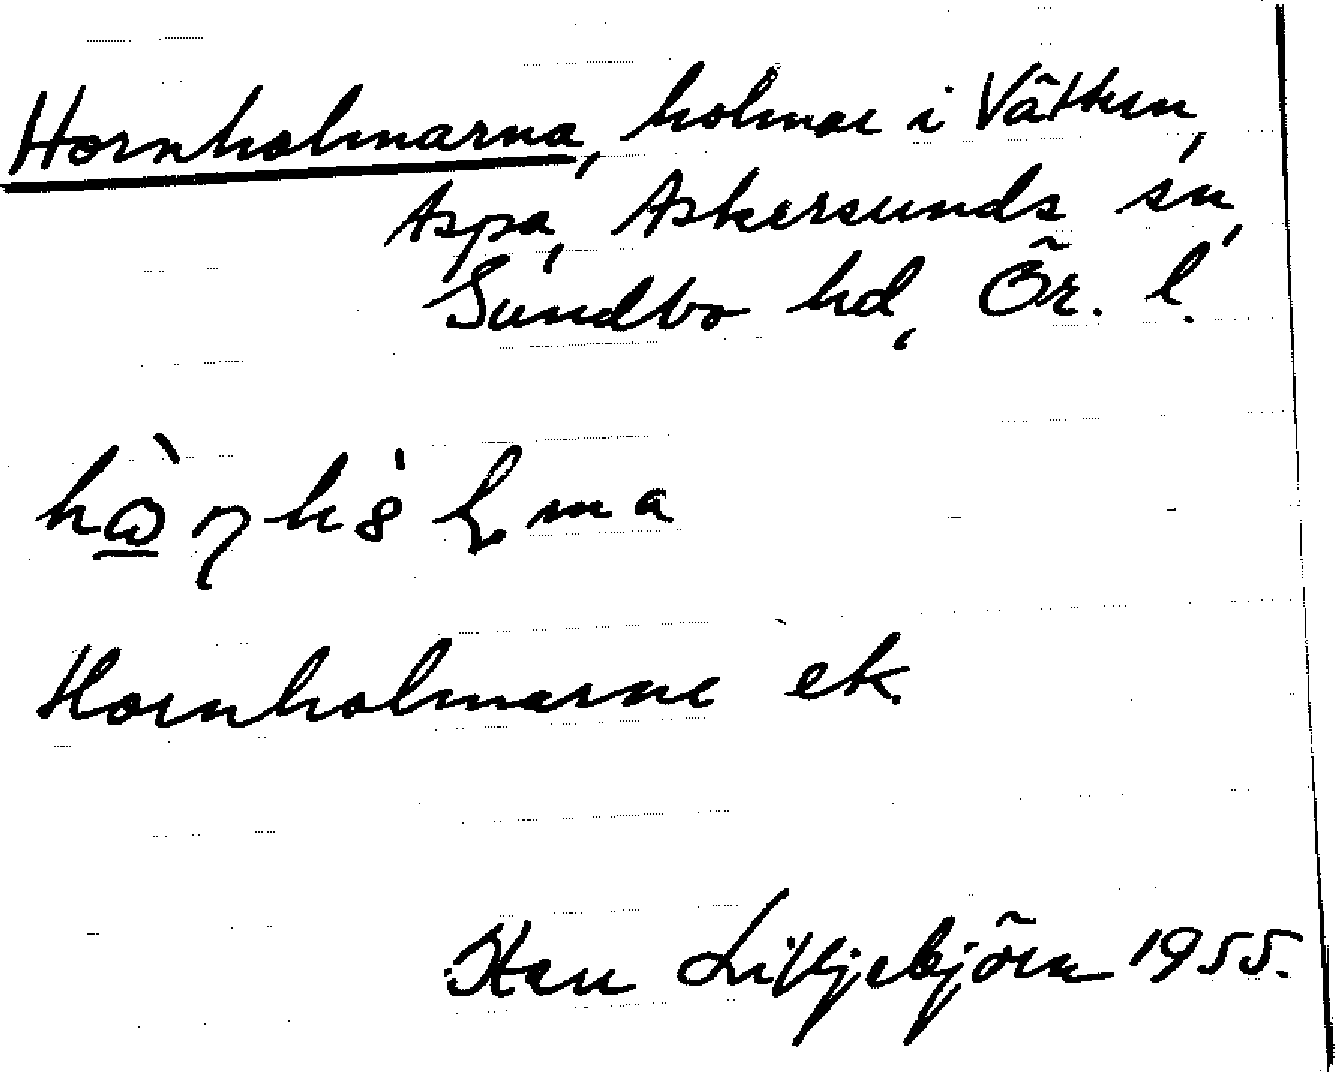 Hornholmarna, holmar i Vättern,
Aspa, Askersunds sn,
Sundbo hd, Ör. l.
Hornholmarne ek.
Sten Lilljebjörn 1955.